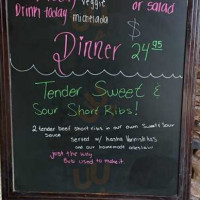 Veggie
or salad
Drink today
michelada
$
Dinner 24.95
Tender Sweet &
Sour Short Ribs!
2 tender beef short ribs in our own Sweet & Sour
Sauce
Served w/ Kasha Varnishkas
and our homemade coleslaw
Just the way
Bub used to make it